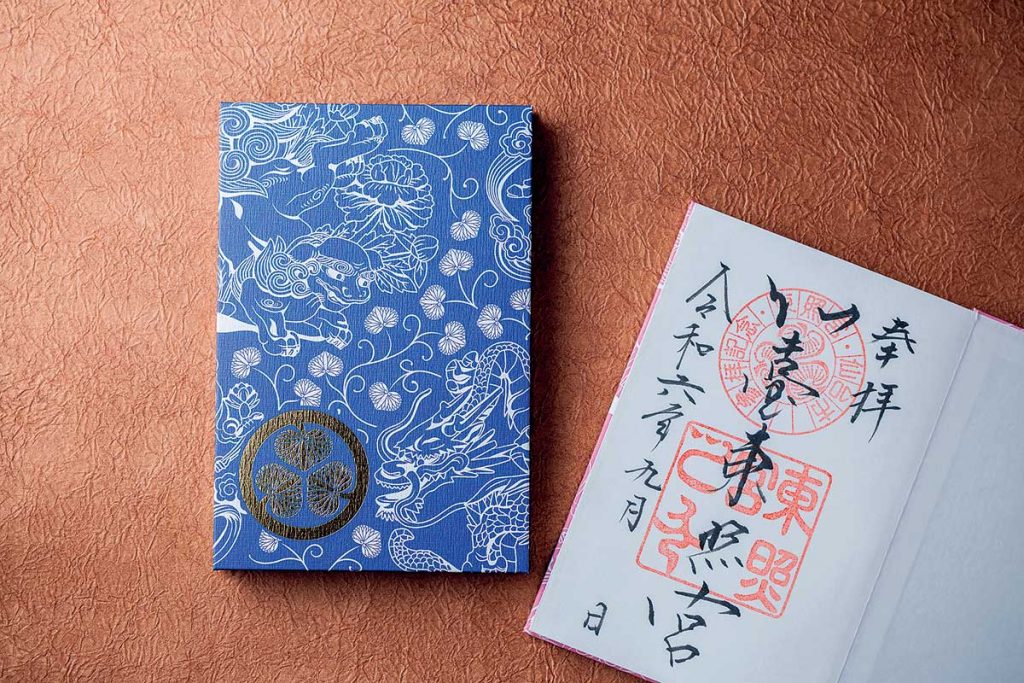 奉拝
仙臺東照宮
令和六年九月
日
東照宮